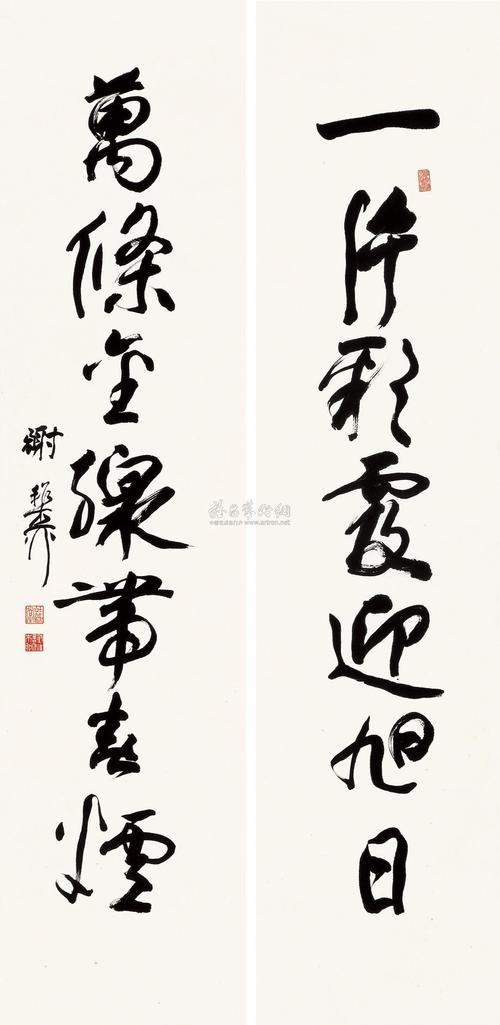 一片彩霞迎旭日
萬條金線帶春煙
謝稚柳
www.artron.net